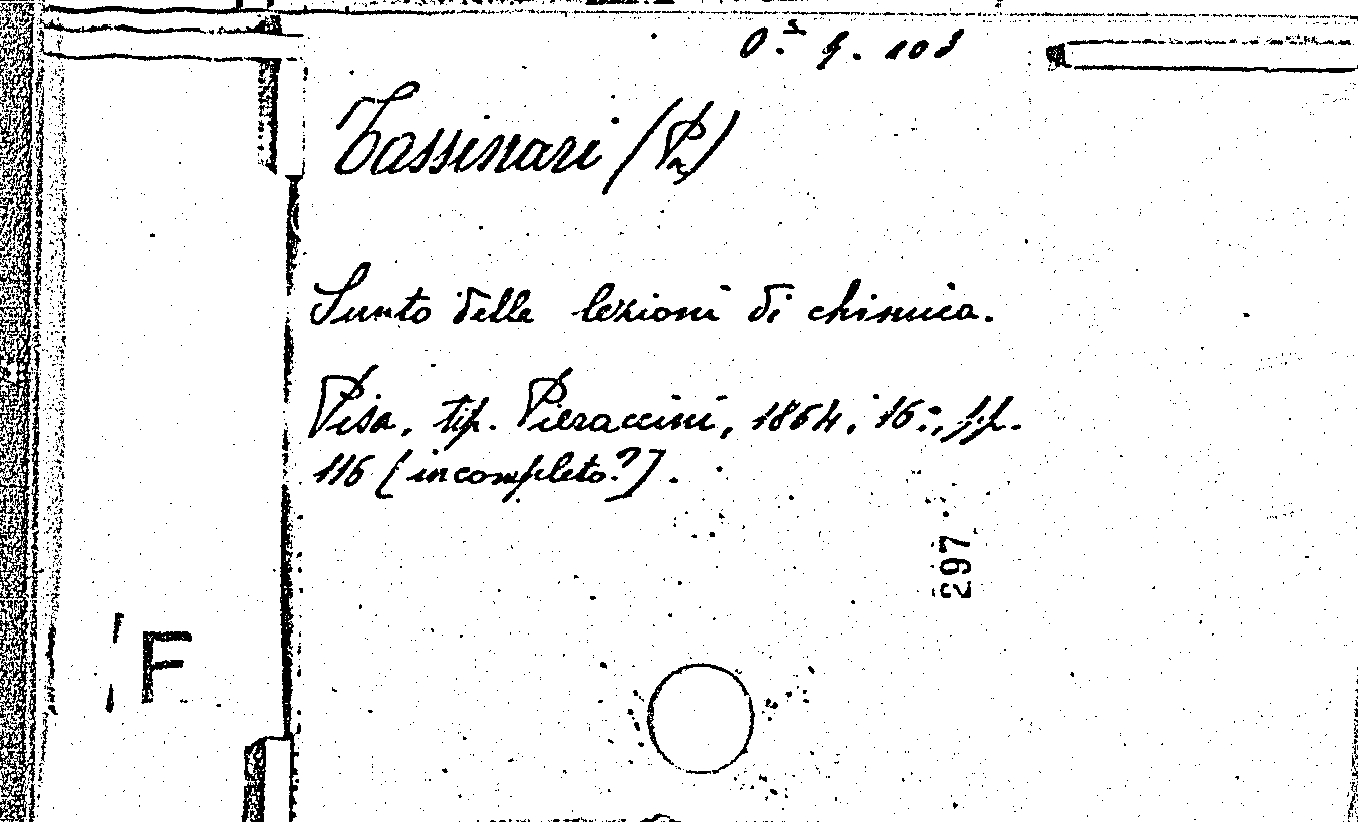 Tassinari (P.)
Sunto delle lezioni di chimica.
Pisa, tip. Pieraccini, 1864; 16:, pp.
116 [incompleto?].
297
F